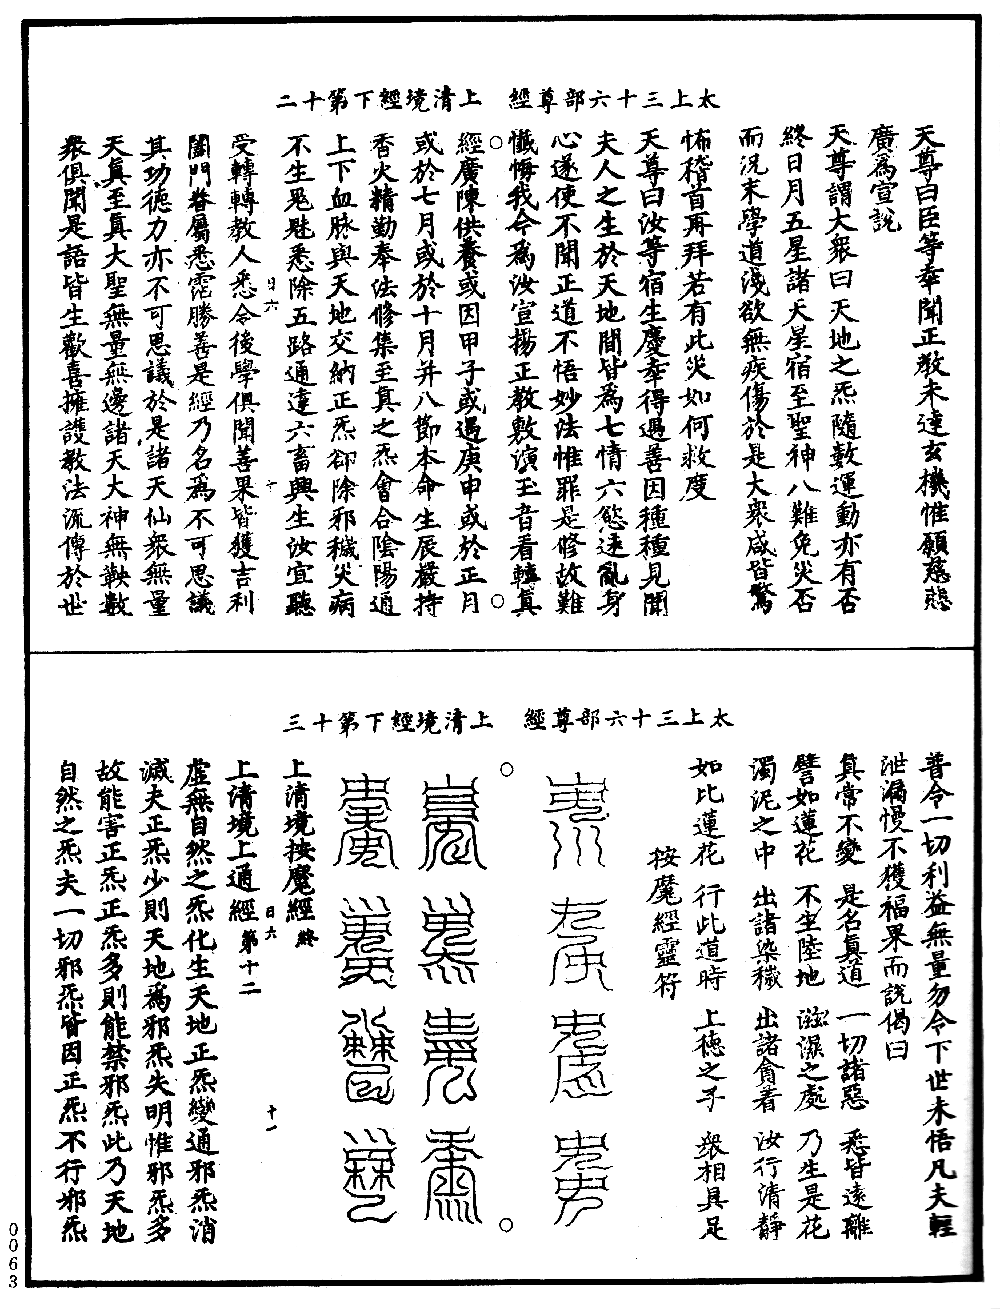 太上三十六部尊經　上清境經下第十二
天尊曰臣等幸聞正教未達玄機惟願慈悲
廣為宣說
天尊謂大衆曰天地之炁隨數運動亦有否
終日月五星諸天星宿至聖神八難免災否
而況末學道淺欲無疾傷於是大衆咸皆驚
怖稽首再拜若有此災如何救度
天尊曰汝等宿生慶幸得遇善因種種見聞
夫人之生於天地間皆為七情六慾迷亂身
心遂使不聞正道不悟妙法惟罪是修故難
懺悔我今為汝宣揚正教敷演玉音看轉真
經廣陳供養或因甲子或遇庚申或於正月
或於七月或於十月并八節本命生辰嚴持
香火精勤奉法修集至真之炁會合陰陽通
上下血脉與天地交納正炁卻除邪穢災病
不生鬼魅悉除五路通達六畜興生汝宜聽
受轉轉教人悉令後學俱聞善果皆獲吉利
闔門眷屬悉霑勝善是經乃名為不可思議
其功德力亦不可思議於是諸天仙衆無量
天真至真大聖無量無邊諸天大神無鞅數
衆俱聞是語皆生歡喜擁護教法流傳於世
日六
十
太上三十六部尊經　上清境經下第十三
普令一切利益無量勿令下世未悟凡夫輕
泄漏慢不獲福果而說偈曰
真常不變　是名真道　一切諸惡　悉皆遠離
譬如蓮花　不生陸地　滋濕之處　乃生是花
濁泥之中　出諸染穢　出諸貪著　汝行清靜
如比蓮花　行此道時　上德之子　衆相具足
按魔經靈符
上清境按魔經終
上清境上通經第十二
虛無自然之炁化生天地正炁變通邪炁消
滅夫正炁少則天地為邪炁失明惟邪炁多
故能害正炁正炁多則能禁邪炁此乃天地
自然之炁夫一切邪炁皆因正炁不行邪炁
日六
十一
0063